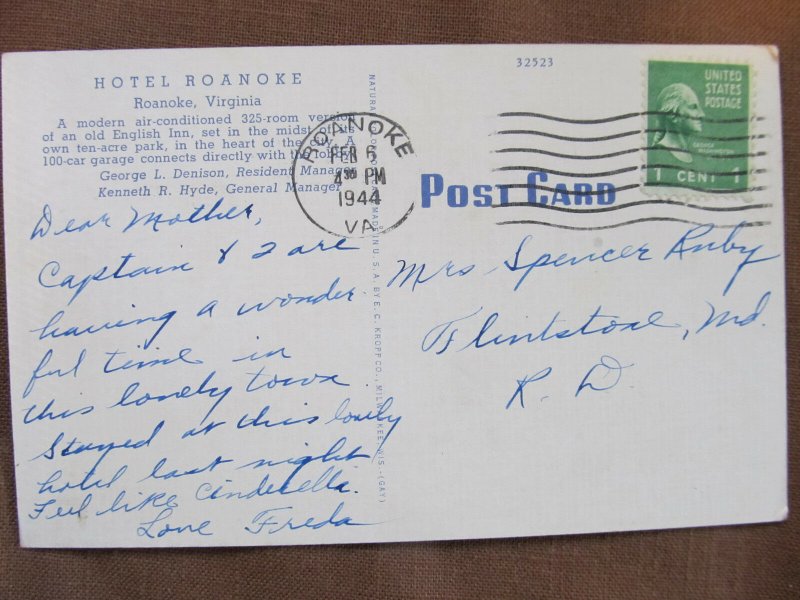 32523
HOTEL ROANOKE
Roanoke, Virginia
A modern air-conditioned 325-room version
of an old English Inn, set in the midst of its
own ten-acre park, in the heart of the city. A
100-car garage connects directly with the
George L. Denison, Resident Manager
Kenneth R. Hyde, General Manager
Dear Mother,
Captain & I are
having a wonder
ful time in
this lovely town
Stayed at this lovely
hotel last night
Feel like Cinderella.
Love Freda
MADE IN U.S.A. BY E. C. KROPP CO., MILWAUKEE, WIS.-(GAY)
ROANOKE
FEB 6
4 30 PM
1944
VA
POST CARD
UNITED
STATES
POSTAGE
GEORGE
WASHINGTON
1 CENT 1
Mrs Spencer Ruby
Flintstone, Md.
R. D.